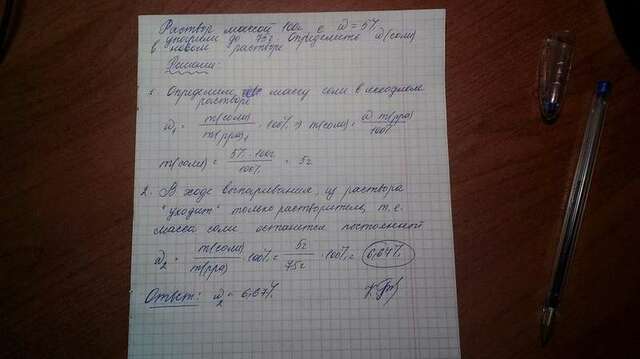 Раствор массой 100г с ω = 5%
упарили до 75г. Определите ω(соли)
в новом растворе
Решение:
1. Определим массу соли в исходном
растворе
ω₁ = m(соли) / m(р-ра)₁ · 100% ⇒ m(соли) = ω · m(р-ра) / 100%
m(соли) = 5% · 100г / 100% = 5г
2. В ходе выпаривания, из раствора
"уходит" только растворитель, т.е.
масса соли останется постоянной
ω₂ = m(соли) / m(р-ра) · 100% = 5г / 75г · 100% = 6,67%
Ответ: ω₂ = 6,67%